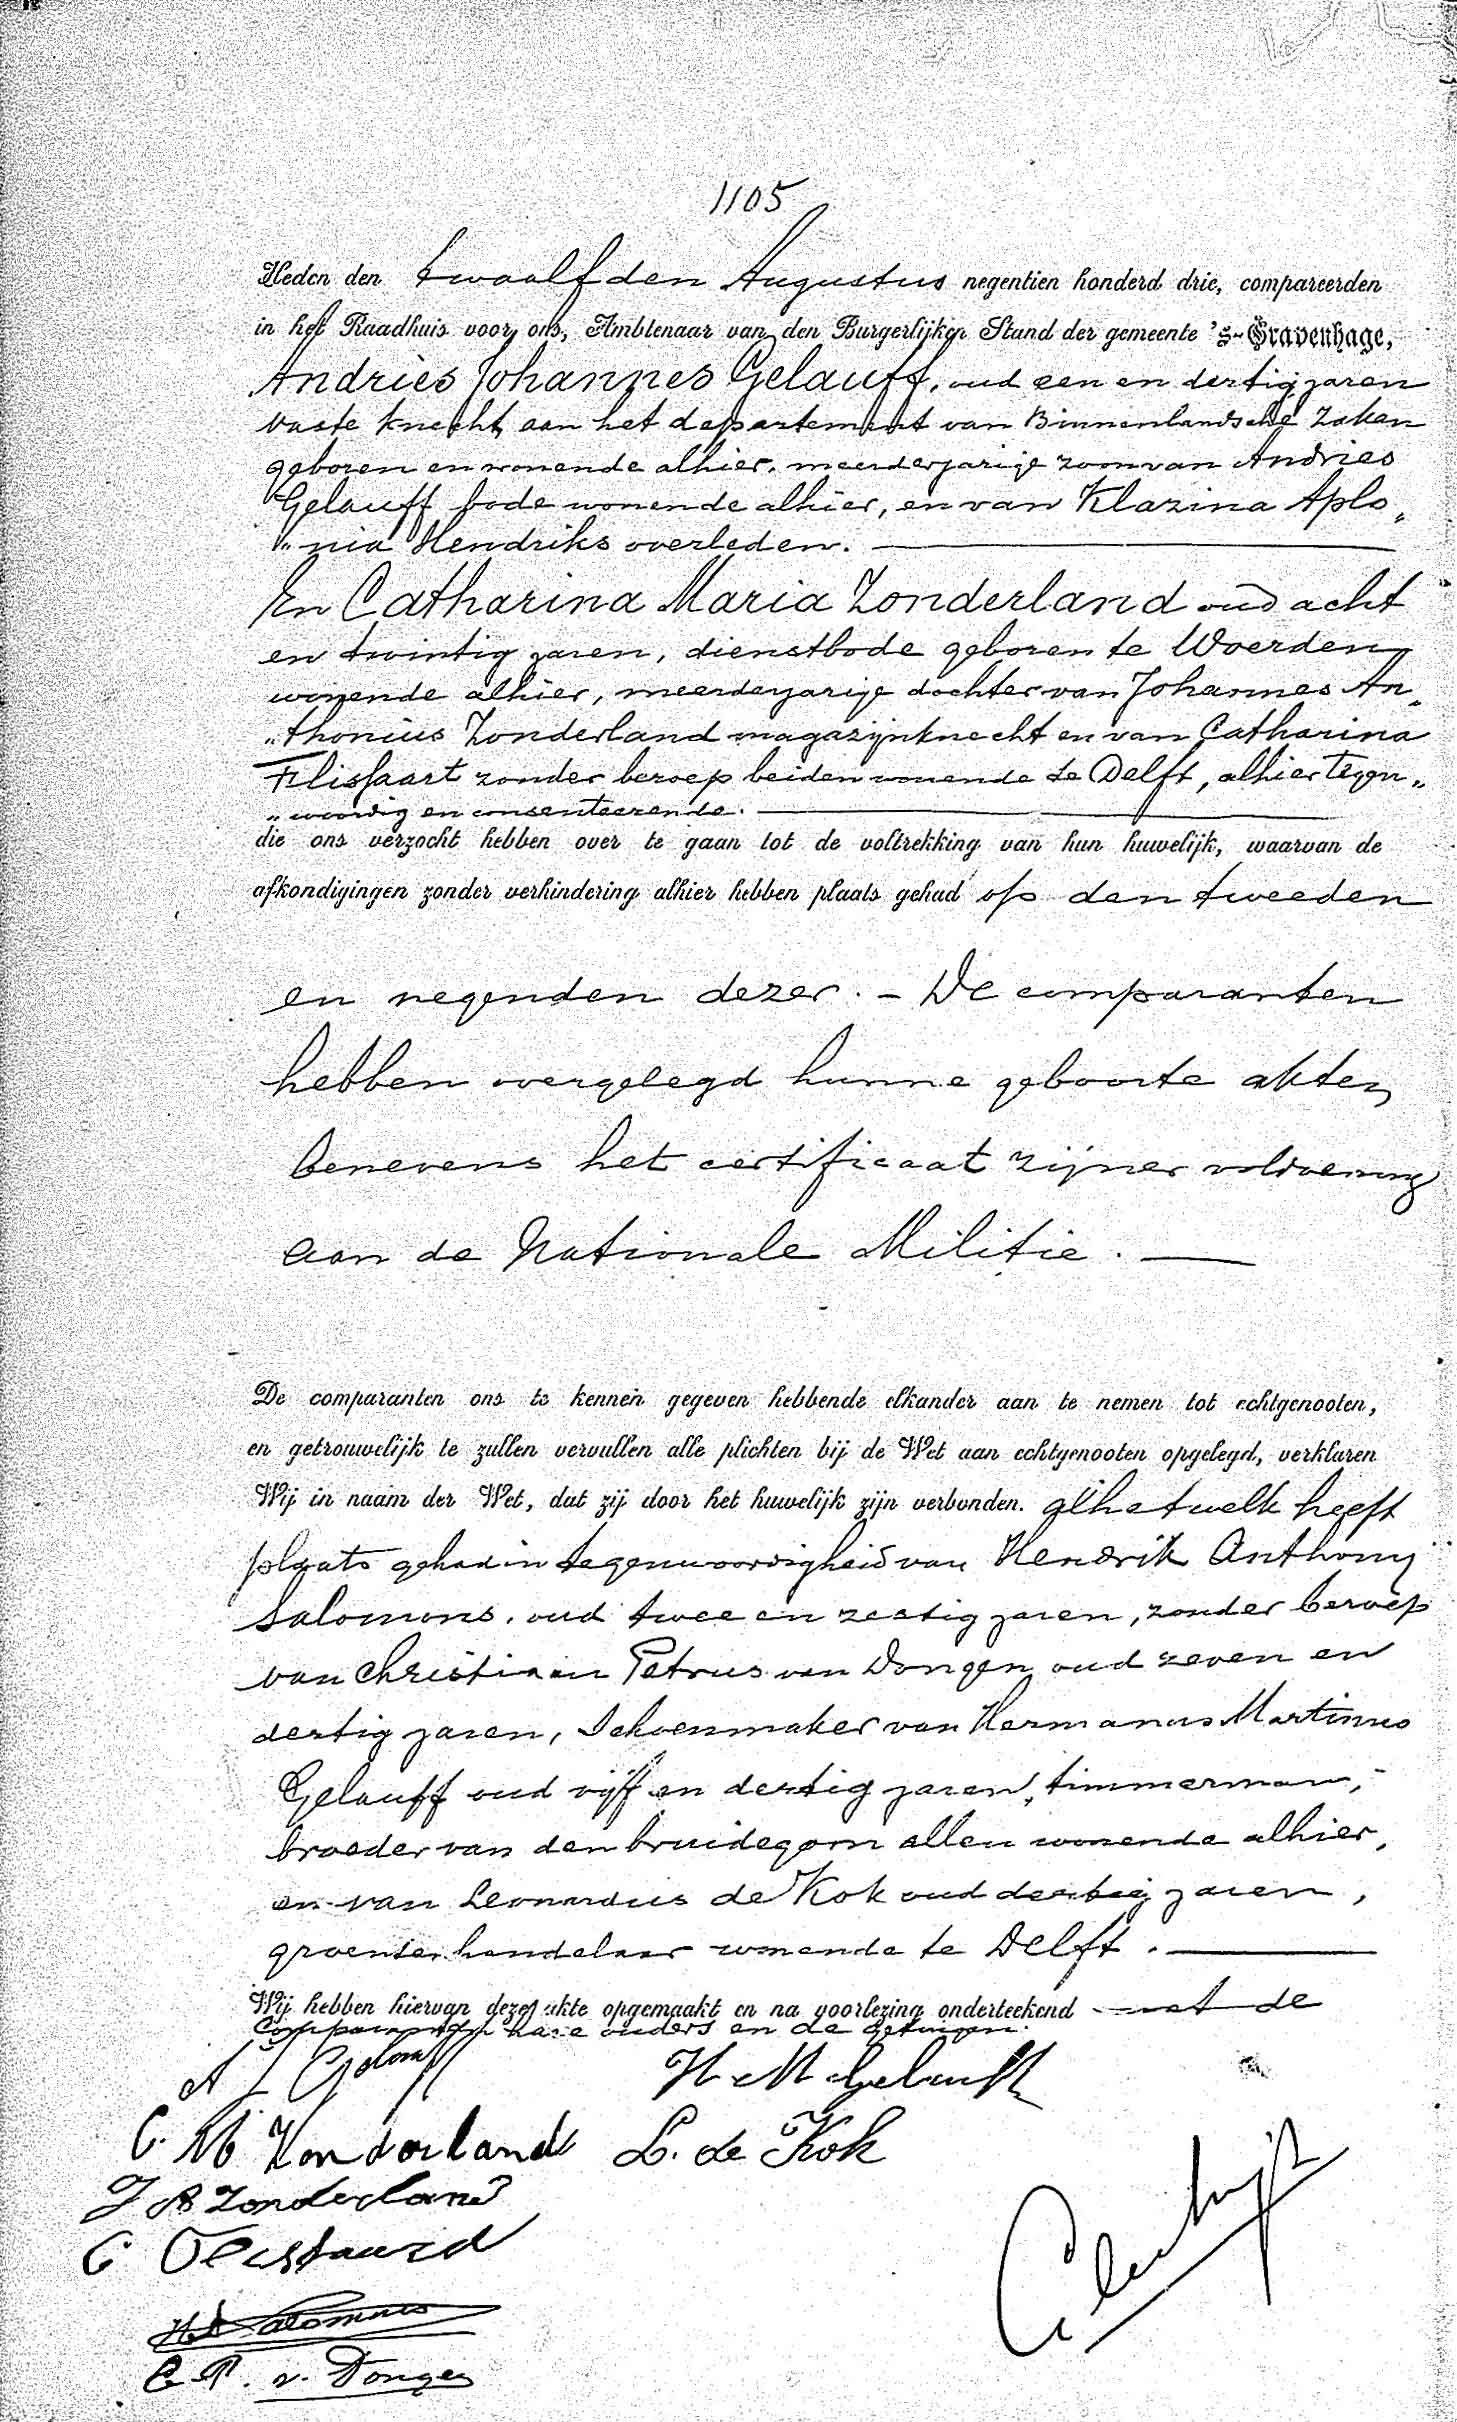 1105
Heden den twaalfden Augustus negentien honderd drie, compareerden
in het Raadhuis voor ons, Ambtenaar van den Burgerlijken Stand der gemeente 's-Gravenhage,
Andries Johannes Gelauff, oud een en dertig jaren
vaste knecht aan het departement van Binnenlandsche Zaken
geboren en wonende alhier, meerderjarige zoon van Andries
Gelauff bode wonende alhier, en van Klazina Aplo„
„nia Hendriks overleden.
En Catharina Maria Zonderland oud acht
en twintig jaren, dienstbode geboren te Woerden
wonende alhier, meerderjarige dochter van Johannes An„
„thonius Zonderland magazijnknecht en van Catharina
Flissaart zonder beroep beiden wonende te Delft, alhier tegen„
„woordig en consenteerende.
die ons verzocht hebben over te gaan tot de voltrekking van hun huwelijk, waarvan de
afkondigingen zonder verhindering alhier hebben plaats gehad op den tweeden
en negenden dezer. – De comparanten
hebben overgelegd hunne geboorte akten
benevens het certificaat zijner voldoening
aan de Nationale Militie.
De comparanten ons te kennen gegeven hebbende elkander aan te nemen tot echtgenooten,
en getrouwelijk te zullen vervullen alle plichten bij de Wet aan echtgenooten opgelegd, verklaren
Wij in naam der Wet, dat zij door het huwelijk zijn verbonden. Alhetwelk heeft
plaats gehad in tegenwoordigheid van Hendrik Anthony
Salomons, oud twee en zestig jaren, zonder beroep
van Christiaan Petrus van Dongen oud zeven en
dertig jaren, Schoenmaker van Hermanus Martinus
Gelauff oud vijf en dertig jaren, timmerman,
broeder van den bruidegom allen wonende alhier,
en van Leonardus de Kok oud dertig jaren,
groenten handelaar wonende te Delft.
Wij hebben hiervan deze akte opgemaakt en na voorlezing onderteekend met de
comparanten hare ouders en de getuigen.
A J Gelauff
H M Gelauff
C. M Zonderland
L. de Kok
J A Zonderland
C
HA Salomons
C. P. v. Dongen